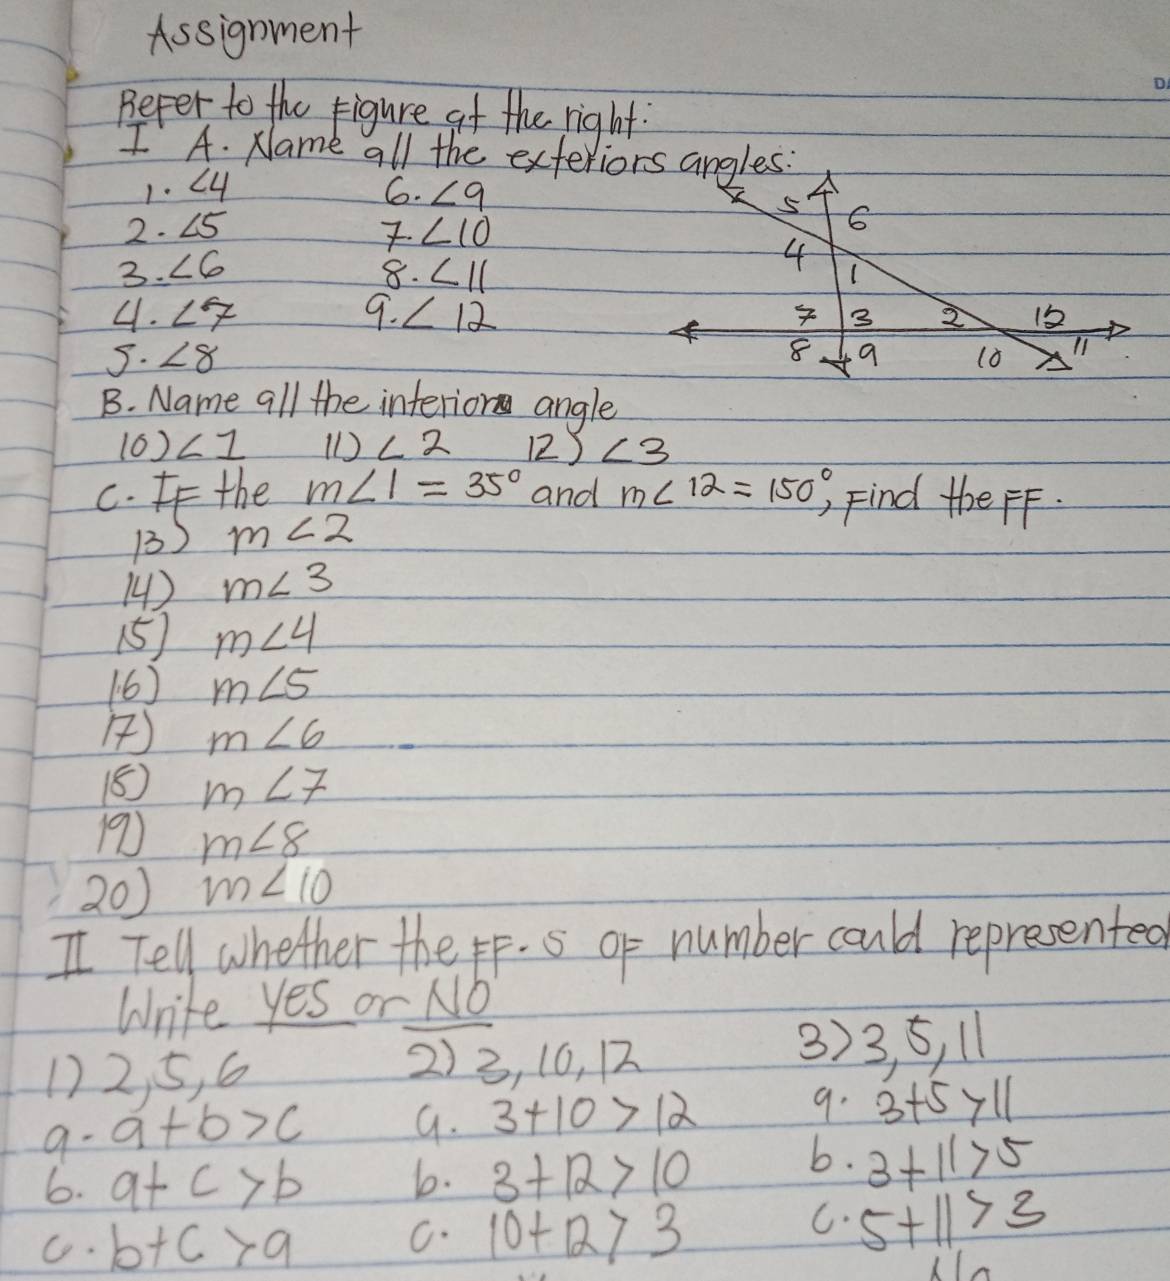 Assignment
DA
Refer to the Figure at the right:
I A. Name all the exteriors angles:
1. <4 6. <9
2. <5 7. <10
3. <6 8. <11
4. <7 9. < 12
5. <8
5 6
4 1
7 3 2 12
8 9 10 11
B. Name all the interior angle
10) <1 11) < 2 12) <3
C. IF the m<1 = 35° and m< 12 = 150°, Find the FF.
13) m <2
14) m<3
15) m<4
16) m<5
17) m <6
18) m <7
19) m<8
20) m<10
II Tell whether the FF. S OF number could represented
Write YES or NO
1) 2,5,6 2) 3,10,12 3) 3,5,11
a. a+b>c a. 3+10>12 a. 3+5>11
b. a+c>b b. 3+12>10 b. 3+11>5
c. b+c>a c. 10+12>3 c. 5+11>3
No